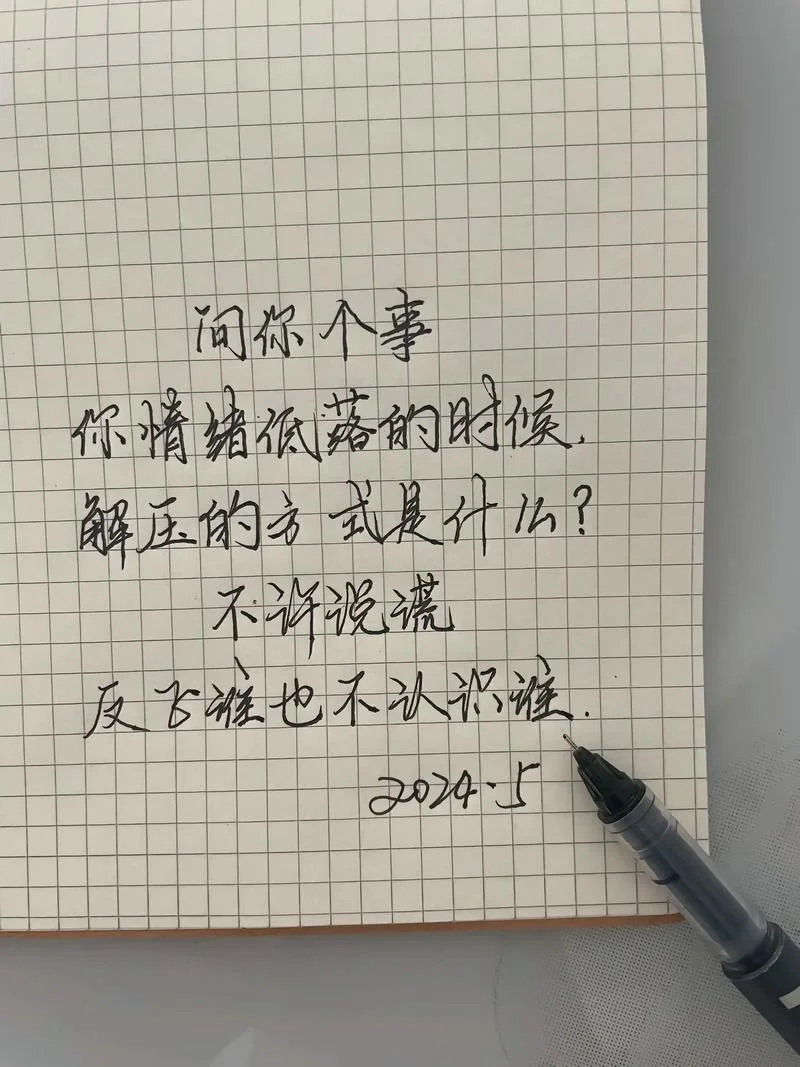 问你个事
你情绪低落的时候,
解压的方式是什么?
不许说谎
反飞谁也不认识谁.
2024.5